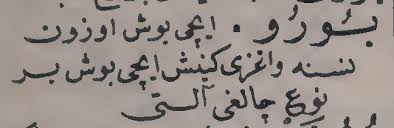 بـئورُو . ایچی بوش اوزون
نسنه واغزی کنیش ایچی بوش بر
نوع چالغی آلتی